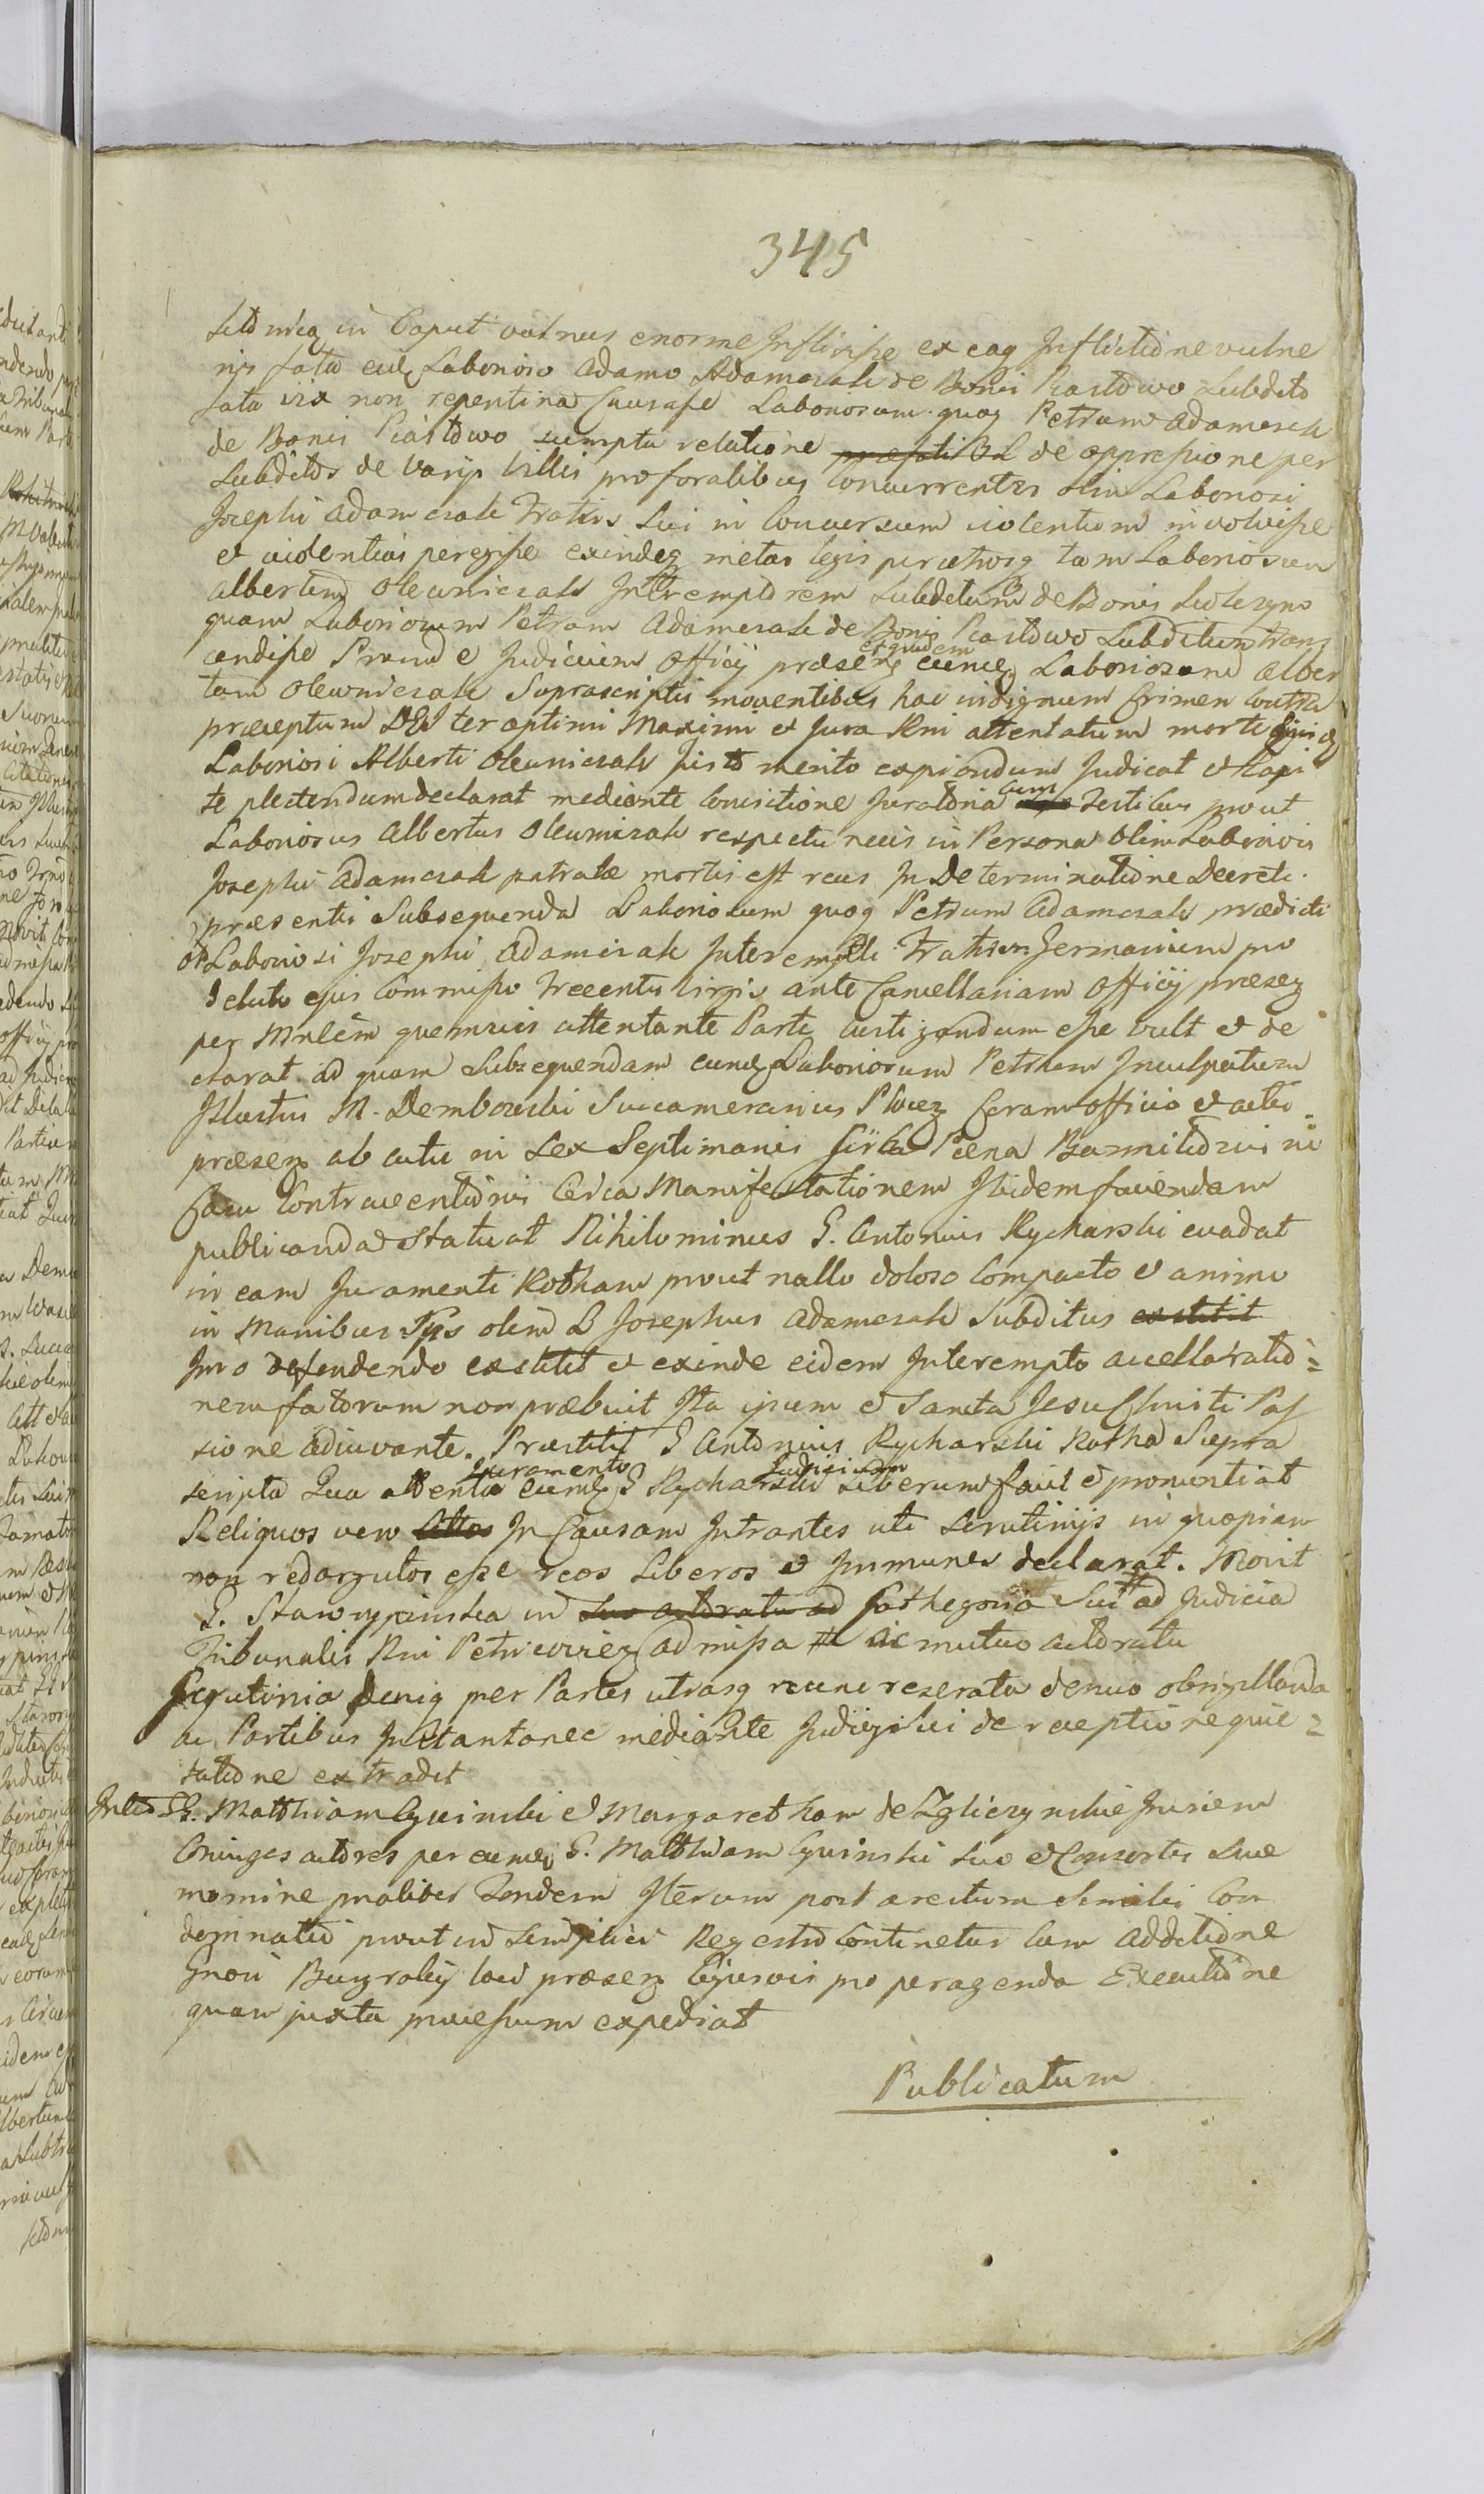 345
in Caput vulnus enorme Inflixisse ex eaq Inflictione vulne
ris fata Laborioso Adamo Adamczak de Bonis Piastowo Subdito
fata vix non repentina Causasse Laboriosum quoq Petrum Adamczak
de Bonis Piastowo sumpta relatione de oppressione per
Subditos de Varijs Villis pro foralibus Concurrentes olim Laboriosi
Josephi Adamczak Fratris Sui in Conversum violentium involvisse
et violentias peregisse exindeq metas legis tam Laboriosum
Albertum Olewniczak Interemptorem Subditum de Bonis
quam Laboriosum Petrum Adamczak de Bonis Piastowo Subditum trans
cendisse Proinde Judicium Officij præsenq et quidem eumq Laboriosum Alber
tum Olewniczak Suprascriptis moventibus hac indignum Crimen contra
præceptum DEI ter optimi Maximi et Jura Rni attentatum morte ejusq
Laboriosi Alberti Olewniczak justo merito expiandum Judicat et Capi
te plectendum declarat mediante Convictione Juratoria cum testibus prout
Laboriosus Albertus Olewniczak respectu necis in Persona olim Laboriosi
Josephi Adamczak patratæ mortis est reus In Determinatione Decreti
præsentis Subsequenda Laboriosum quoq Petrum Adamczak prædicti
ol Laboriosi Josephi Adamczak Interempti Fratrem Germanum pro
delicto ejus Commisso trecentis virgis ante Cancellariam Officij præseq
per Mnlem quemvis attentante Parte castigandum esse vult et de
clarat ad quam Subsequendam eumq Laboriosum Petrum Inculpatum
Illustris M. Dembowski Succamerarius Plocq Coram Officio et actis
præsenq ab actu in Sex Septimanis sub Pæna Bannitionis in
Casu Contraventionis Circa Manifestationem Ibidem faciendam
publicanda Statuat Nihilominus G. Antonius Rycharski evadat
in eam Juramenti Rotham prout nullo doloso Compacto et animo
in Manibus Ips olim L Josephus Adamczak Subditus exstitit
Imo defendendo exstitit et exinde eidem Interempto accelleratio=
nem fatorum non præbuit Ita ipsum et Sancta Jesu Christi Pas
sione adiuvante. Præstitit G Antonius Rycharski Rotha Supra
scripta Quo attento Juramento eumq G Rycharski Judicium Liberum facit et pronuntiat
Reliquos vero In Causam Intrantes uti Scrutinijs in quopiam
non redargutos esse reos Liberos et Immunes declarat. Movit
G. Stawny in suo actoratu ad Cathegoria Sui # ad Judicia
Tribunalis Rni Petricovieq admissa # ac mutuo actoratu
Scrutinia deniq per Partes utrasq recenc reserata denuo obsigillanda
ac Partibus Instantanee mediante Judicij Sui de receptione quie=
tatione extradit
Inter GG. Matthiam et Margaretham de Zgliczynskie Jurium
Coniuges actores per eumq G. Matthiam suo et Consortis suæ
nomine Tandem Iterum post arestum Simili Con
demnatio prout in Simplici Regestro Continetur Cum Additione
Gnosi Burgrabij loci præsenq Cujusvis pro peragenda Executione
quam juxta processum expediat
Publicatum